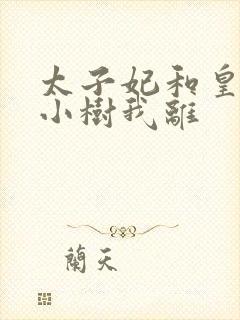 太子妃和皇
小樹我離
蘭天